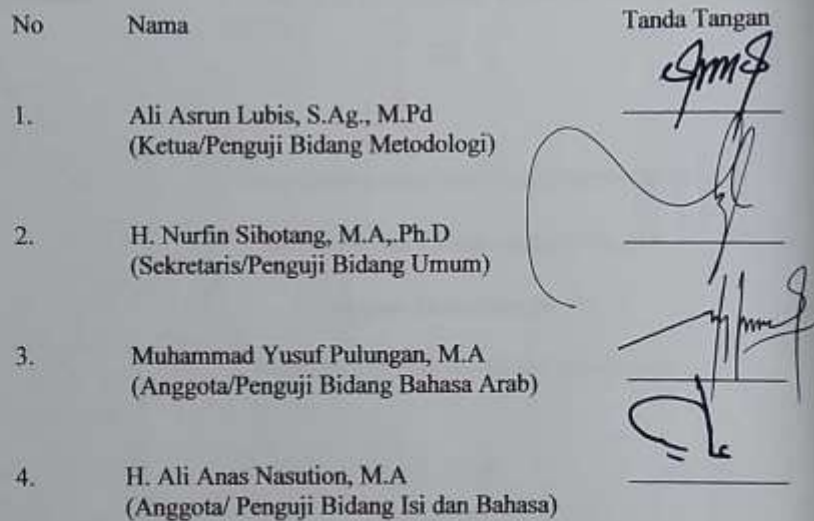 No Nama Tanda Tangan
1. Ali Asrun Lubis, S.Ag., M.Pd
(Ketua/Penguji Bidang Metodologi)
2. H. Nurfin Sihotang, M.A,.Ph.D
(Sekretaris/Penguji Bidang Umum)
3. Muhammad Yusuf Pulungan, M.A
(Anggota/Penguji Bidang Bahasa Arab)
4. H. Ali Anas Nasution, M.A
(Anggota/ Penguji Bidang Isi dan Bahasa)